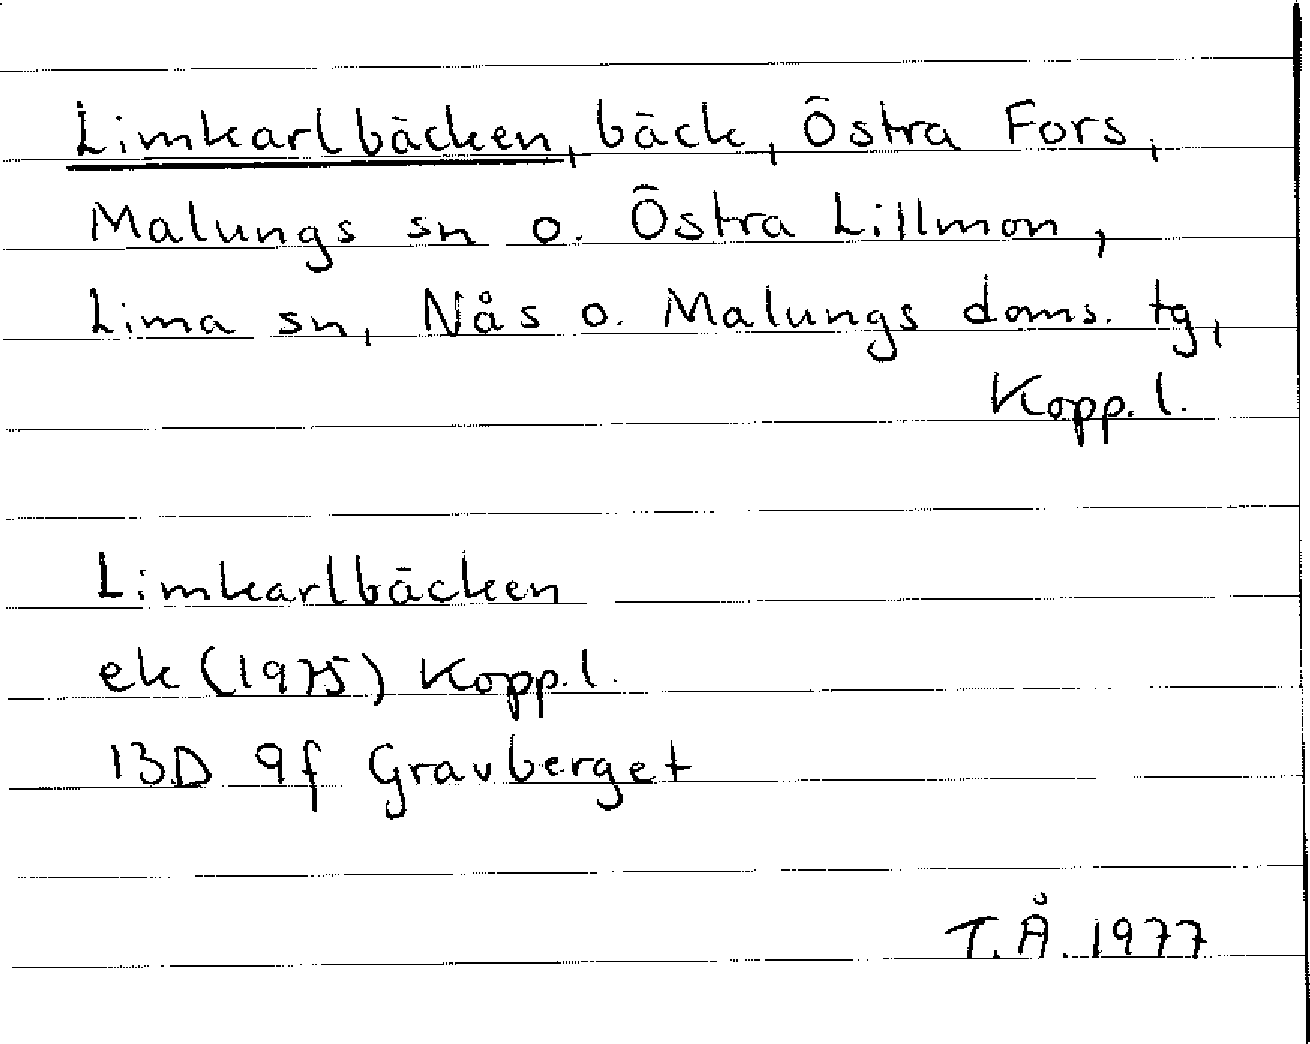 Limkarlbäcken, bäck, Östra Fors,
Malungs sn o. Östra Lillmon,
Lima sn, Nås o. Malungs doms. tg,
Kopp. l.
Limkarlbäcken
ek (1975) Kopp. l.
13D 9f Gravberget
T.Å. 1977